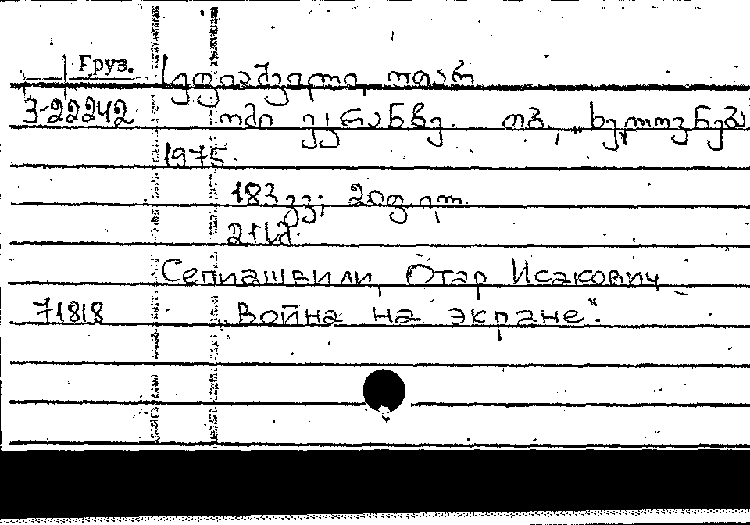 Груз. სეფიაშვილი, ოთარ
3-22242 ომი ეკრანზე. თბ., „ხელოვნება
1975.
183 გვ; 20ფ.ილ.
Сепиашвили, Отар Исакович
71818 „Война на экране".